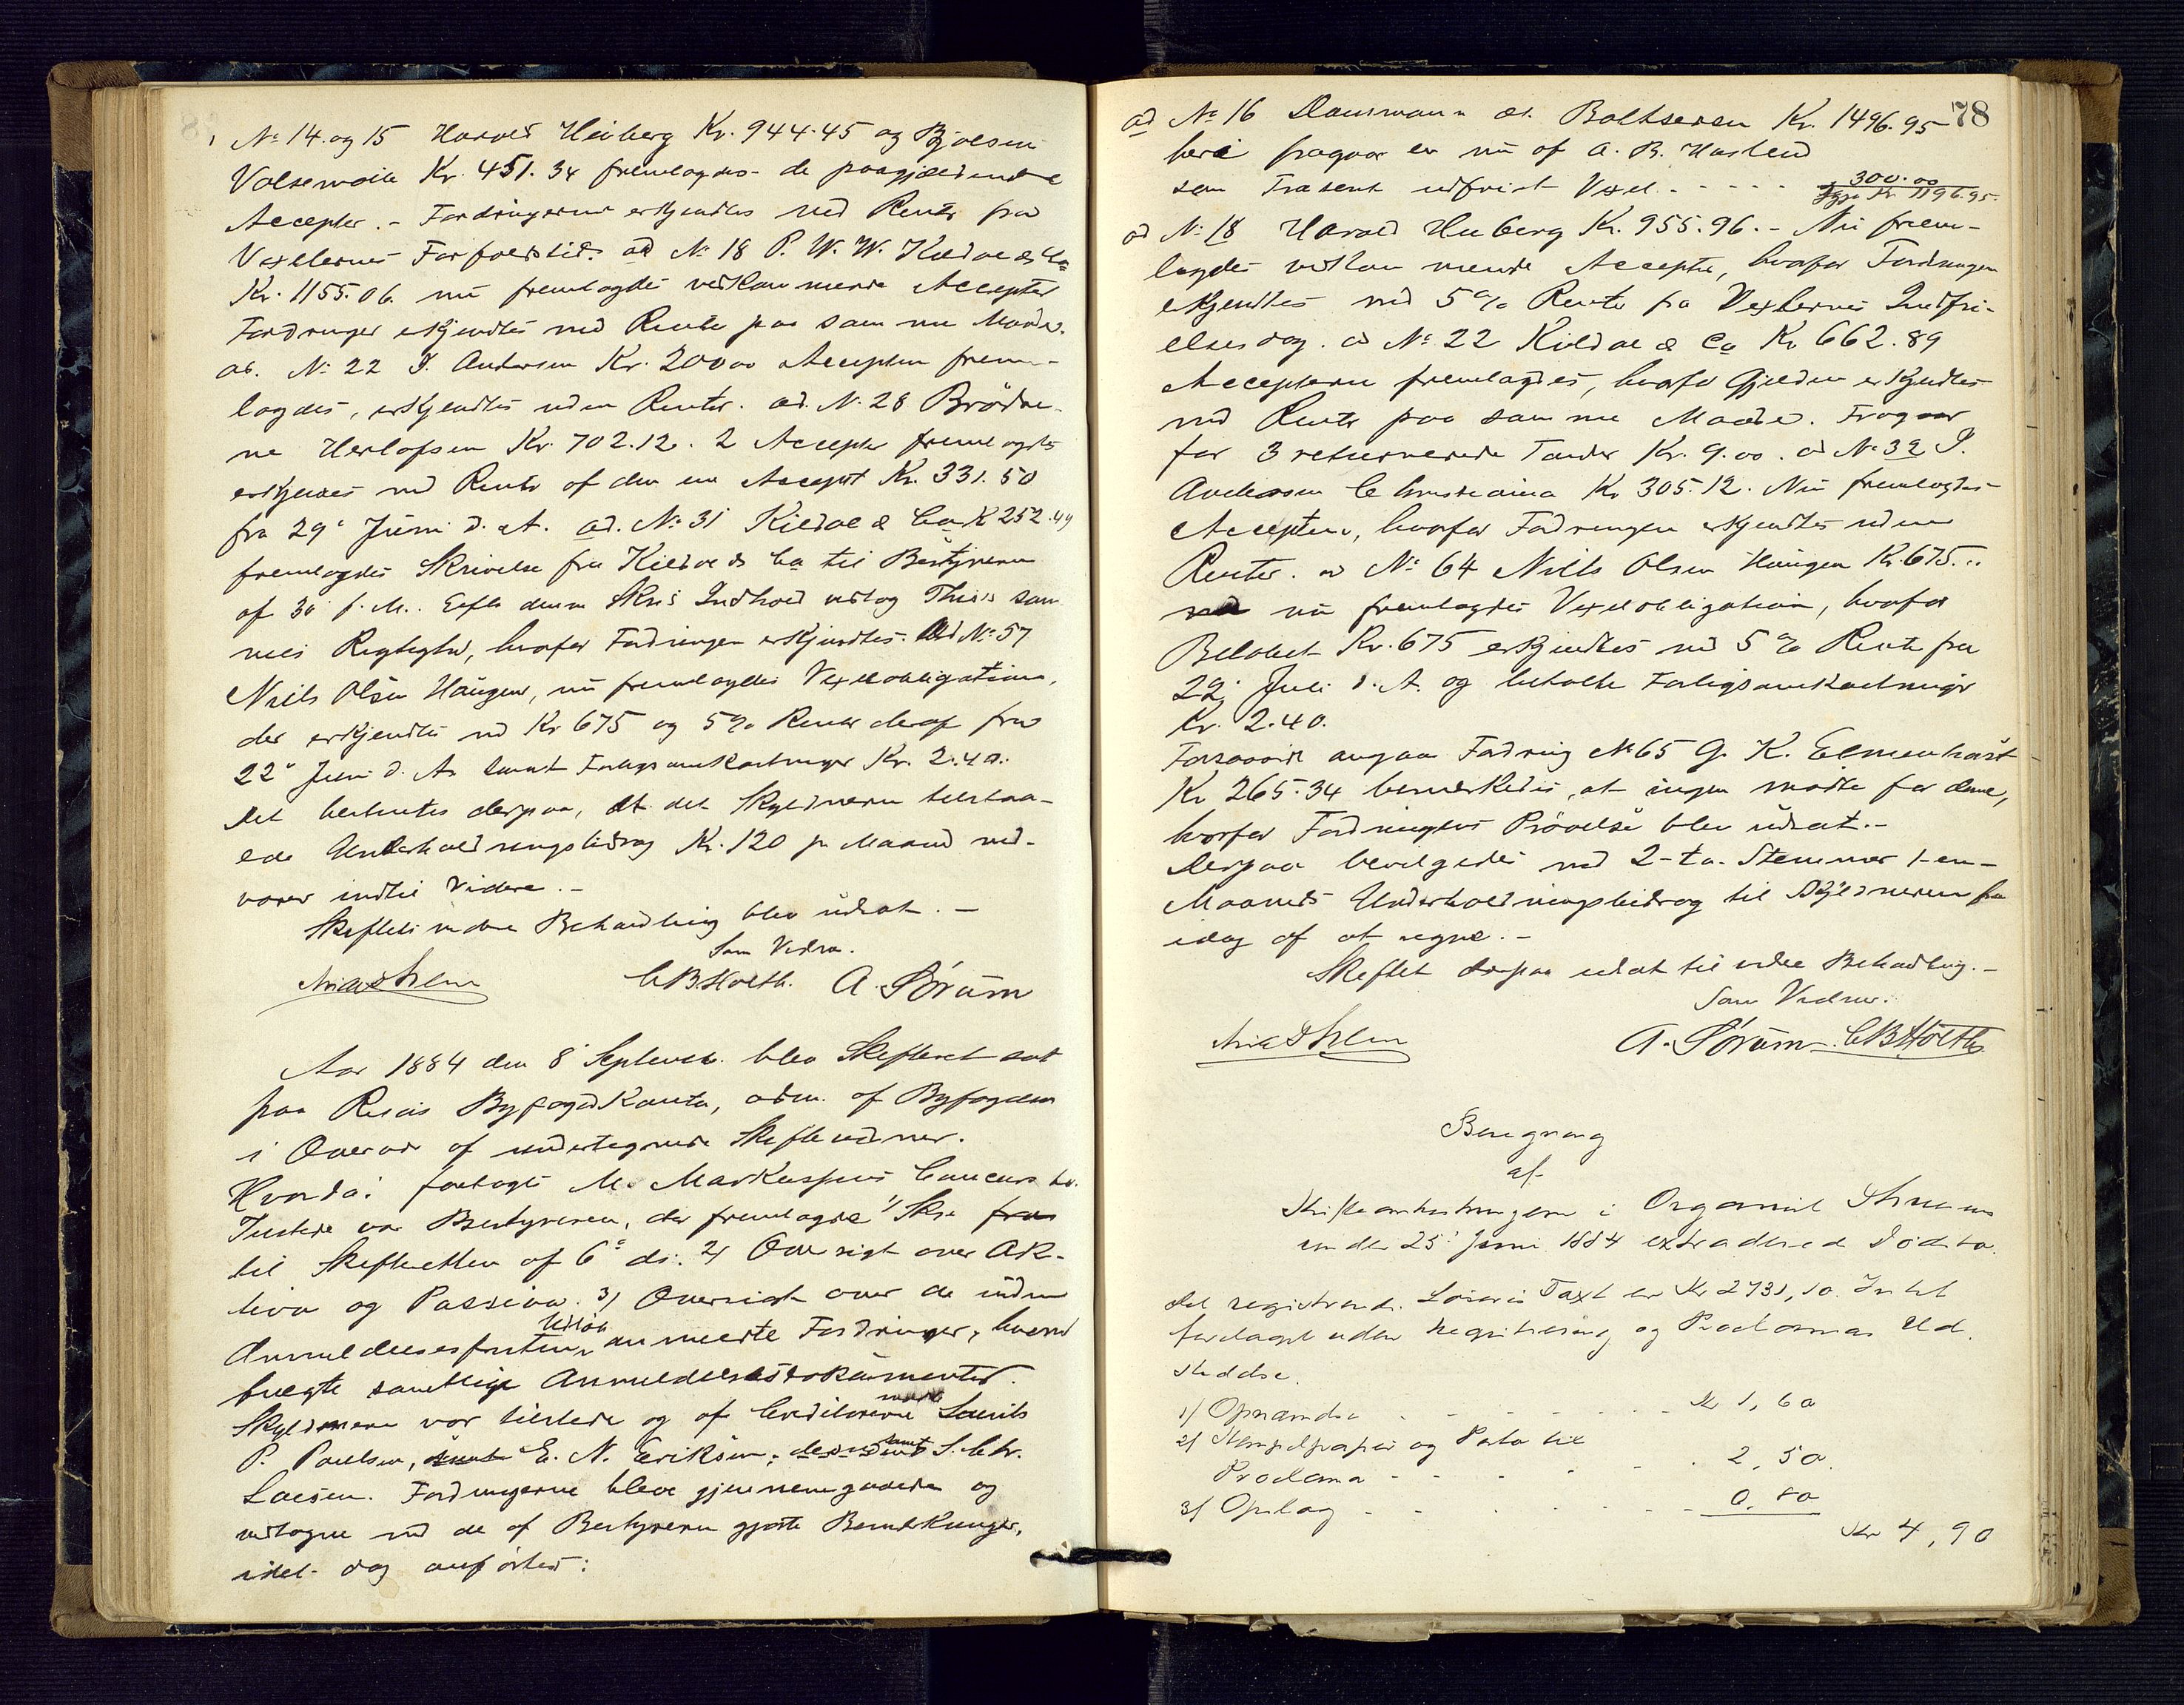 No 14. og 15 Harald Heiberg Kr. 944.45 og Bjølsen
Valsemølle Kr. 451.34 fremlagdes de paagjældende
Accepter. - Fordringerne erkjendtes med Rente fra
Vexlernes Forfaldstid. ad No 18 P. W. W. Kildal & Co
Kr. 1155.06. nu fremlagdes vedkommende Accepter
Fordringer erkjendtes med Rente paa samme Maade.
ad. No 22 I. Andersen Kr. 200.00 Accepten frem-
lagdes, erkjendtes uden Renter. ad. No. 28 Brødre-
ne Herlofsen Kr. 702.12. 2 Accepter fremlagdes
erkjendes med Rente af den ene Accept Kr. 331.50
fra 29de Juni d. A. ad. No 31 Kildal & Co K 252.44
fremlagdes Skrivelse fra Kildal & Co til Bestyreren
af 30 f. M. Efter denne Skrs Indhold vedtog This sam
mes Rigtighed, hvorfor Fordringen erkjendtes. Ad No 57
Niels Olsen Haugen, nu fremlagdes Vexelobligationen,
der erkjendtes med Kr 675 og 5% Rente deraf fra
22de Juni d. A. samt Forligsomkostninger Kr. 2.40.
Det besluttes derpaa, at det Skyldneren tilstaa-
ede Underholdningsbidrag Kr. 120 pr Maaned ved-
varer indtil Videre. -
Skiftets videre Behandling blev udsat. -
Som Vidner.
C B Holth. A. Sørum
Aar 1884 den 8 Septemb. blev Skifteret sat
paa Risørs Byfogedkontor, adm. af Byfogden
i Overvær af undertegnede Skiftevidner.
Hvorda: foretoges M. Markussens Concursbo.
Tilstede var Bestyreren, der fremlagde 1/ Skr fra
til Skifteretten af 6de ds. 2/ Oversigt over Ak-
tiva og Passiva. 3/ Oversigt over de inden
Anmeldelsesfristens Udløb anmeldte Fordringer, hvormed
fulgte samtlige Anmeldelsesdokumenter.
Skyldneren var tilstede og af Creditorerne mødte Laurits
P. Paulsen, samt E. N. Eriksen, desuden samt S. Chr.
Larsen. Fordringerne bleve gjennemgaaede og
vedtagne med de af Bestyreren gjorte Bemærkninger,
idet dog anførtes:
78
ad No 16 Dansmann & Balthsersen Kr. 1496.95
heri fragaar en nu af A. B. Haslund
som Trasent udfriet Vexel - - - - - 300.00
Igjen Kr 1196.95.
ad No 18 Harald Heiberg Kr. 955.96. - Nu frem-
lagdes vedkommende Accepter, hvorfor Fordringen
erkjendtes med 5% Rente fra Vexlernes Indfri-
elsesdag. ad No 22 Kildal & Co Kr 662.89
Accepterne fremlagdes, hvorfor Gjælden erkjendtes
med Rente paa samme Maade. Fragaar
for 3 returnerede Tønder Kr. 9.00. ad No 32 I.
Andersen Christiania Kr 305.12. Nu fremlagdes
Accepten, hvorfor Fordringen erkjendtes uden
Renter. ad No 64 Niels Olsen Haugen Kr. 675...
nu fremlagdes Vexelobligation, hvorfor
Beløbet Kr. 675 erkjendtes med 5% Rente fra
22 Juli d. A. og betalte Forligsomkostninger
Kr. 2.40.
Forsaavidt angaar Fordring No 65 G. K. Elmenhorst
Kr 265.34 bemærkedes, at ingen mødte for denne,
hvorfor Fordringens Prøvelse blev udsat. -
Derpaa bevilgedes med 2-to-Stemmer 1-en-
Maaneds Underholdningsbidrag til Skyldneren fra
idag af at regne. -
Skiftet derpaa udsat til videre Behandling. -
Som Vidner.
A. Sørum C B Holth
Beregning
af
Skifteomkostningerne i Organist
under 25 Juni 1884 extraderede Dødsbo.
Det registrerede Løsøres Taxt er Kr 2731,10. Intet
foretaget uden Registrering og Proclamas Ud-
stedelse.
1/ Opnævnelse - - - - - Kr 1,60
2/ Stempelpapir og Porto til
Proclama - - - - - 2,50.
3/ Opslag - - - - - 0.80
Kr 4,90